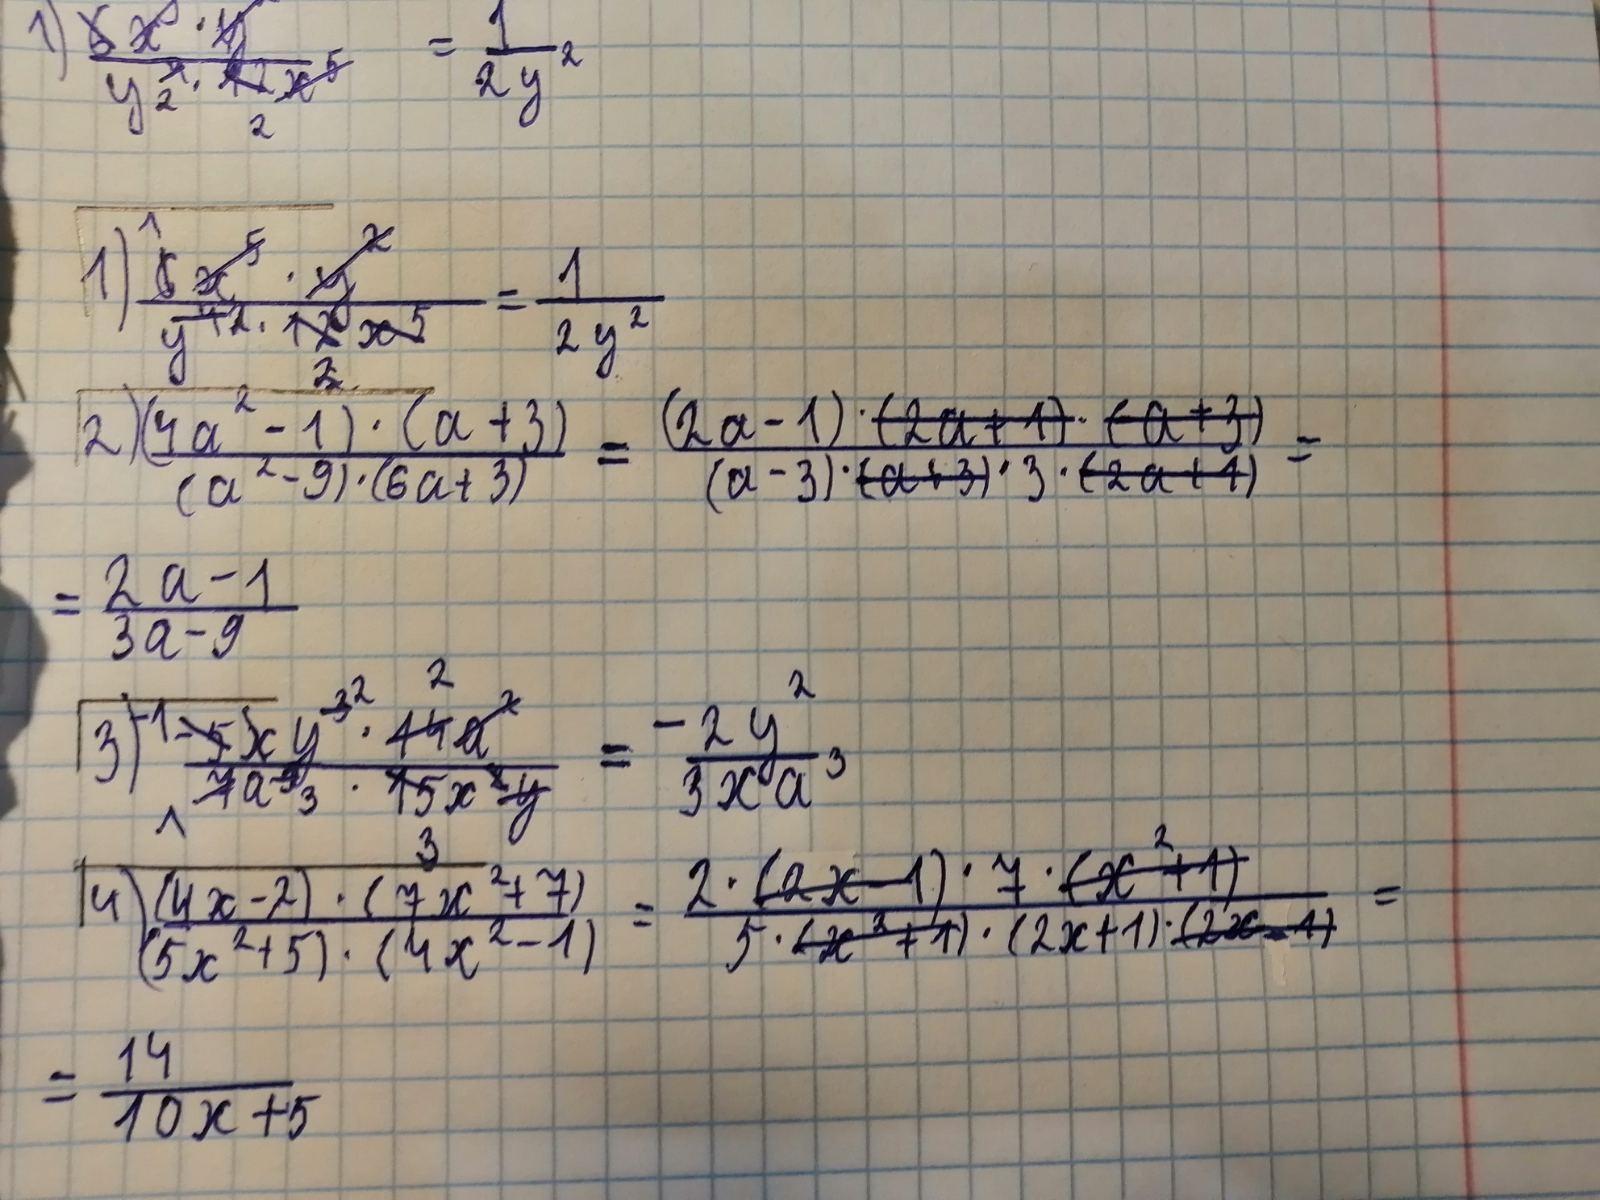 1) 6x⁵ · y / y⁴ ² · 12 2 x⁵ = 1 / 2y²
1) 6 1 x⁵ · y² / y⁴ ² · 12 2 x⁵ = 1 / 2y²
2) (4a² - 1) · (a + 3) / (a² - 9) · (6a + 3) = (2a - 1) · (2a + 1) · (a + 3) / (a - 3) · (a + 3) · 3 · (2a + 1) =
= 2a - 1 / 3a - 9
3) -1 -5xy³ ² · 14 2 a² / 7 1 a⁵ ³ · 15 3 x² y = -2y² / 3xa³
4) (4x - 2) · (7x² + 7) / (5x² + 5) · (4x² - 1) = 2 · (2x - 1) · 7 · (x² + 1) / 5 · (x² + 1) · (2x + 1) · (2x - 1) =
= 14 / 10x + 5